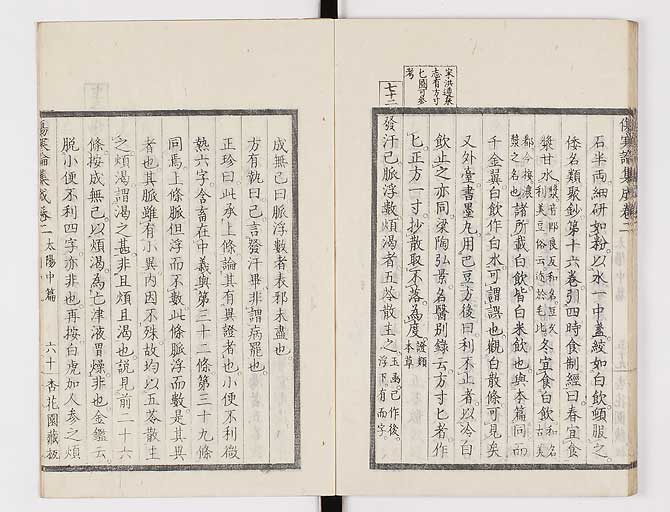 傷寒論集成卷二
石半両細研如粉以水一中盞絞如白飲頓服之
倭名類聚鈔第十六卷引四時食制經曰春宜食
漿甘水
冬宜食白飲
諸所載白飲皆白米飲也與本篇同而
千金翼白飲作白水可謂誤也觀白散條可見矣
又外臺書墨丸用巴豆方後曰利不止者以冷白
飲止之亦同梁陶弘景名醫別錄云方寸匕者作
匕正方一寸抄散取不落為度
證類本草
宋洪遵泉志有方寸匕圖可參考
七十二
發汗已脈浮數煩渴者五苓散主之
玉函已作後浮下有而字
成無已曰脈浮數者表邪未盡也
方有執曰已言發汗畢非謂病罷也
正珍曰此承上條論其有異證者也小便不利微
熱六字含畜在中義與第三十二條第三十九條
同焉上條脈但浮而不數此條脈浮而數是其異
者也其脈雖有小異內因不殊故均以五苓散主
之煩渴謂渴之甚非且煩且渴也說見前二十六
條按成無已以煩渴為亡津液胃燥非也金鑑云
脫小便不利四字亦非也再按白虎加人參之煩
傷寒論集成卷二 太陽中篇 六十 杏花園藏板